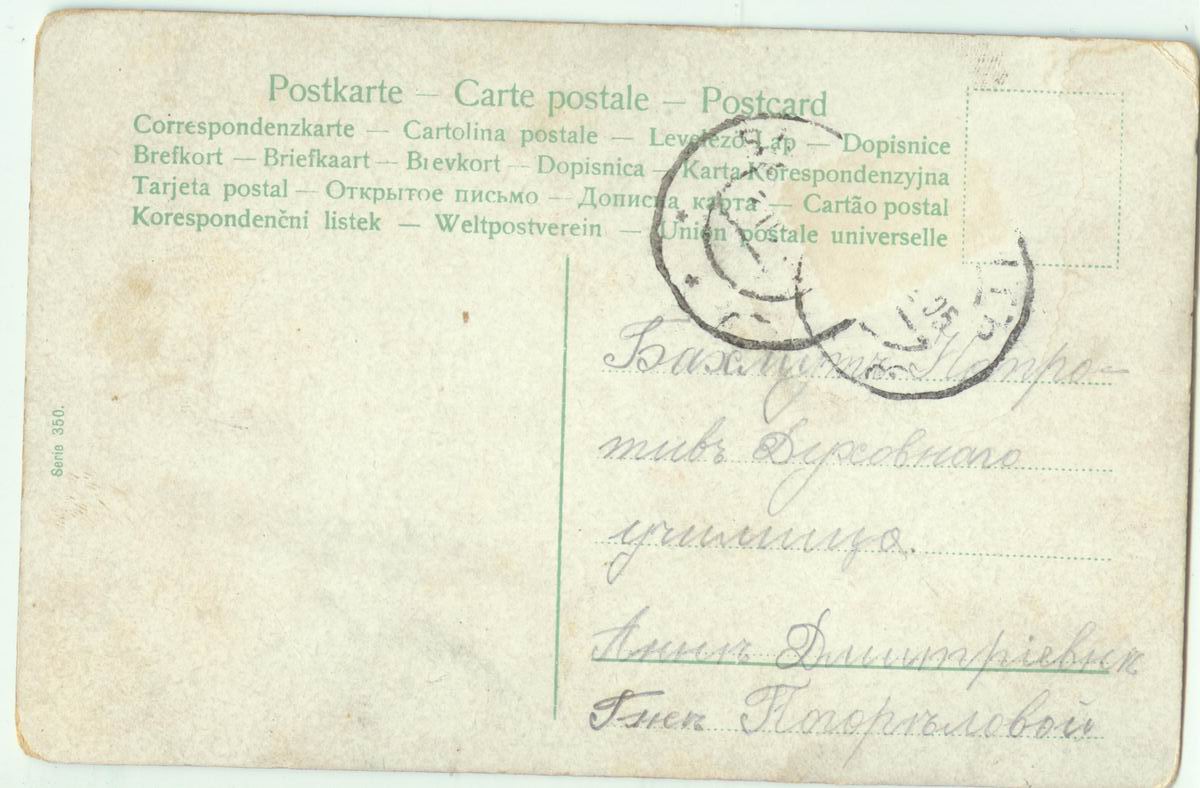 Postkarte — Carte postale — Postcard
Correspondenzkarte — Cartolina postale — Levelező Lap — Dopisnice
Brefkort — Briefkaart — Brevkort — Dopisnica — Karta Korespondenzyjna
Tarjeta postal — Открытое письмо — Дописна карта — Cartão postal
Korespondenční listek — Weltpostverein — Union postale universelle
05
Serie 350.
Бахмутъ Напро-
тивъ Духовнаго
училища.
Аннѣ Дмитріевнѣ
Гжѣ Погорѣловой